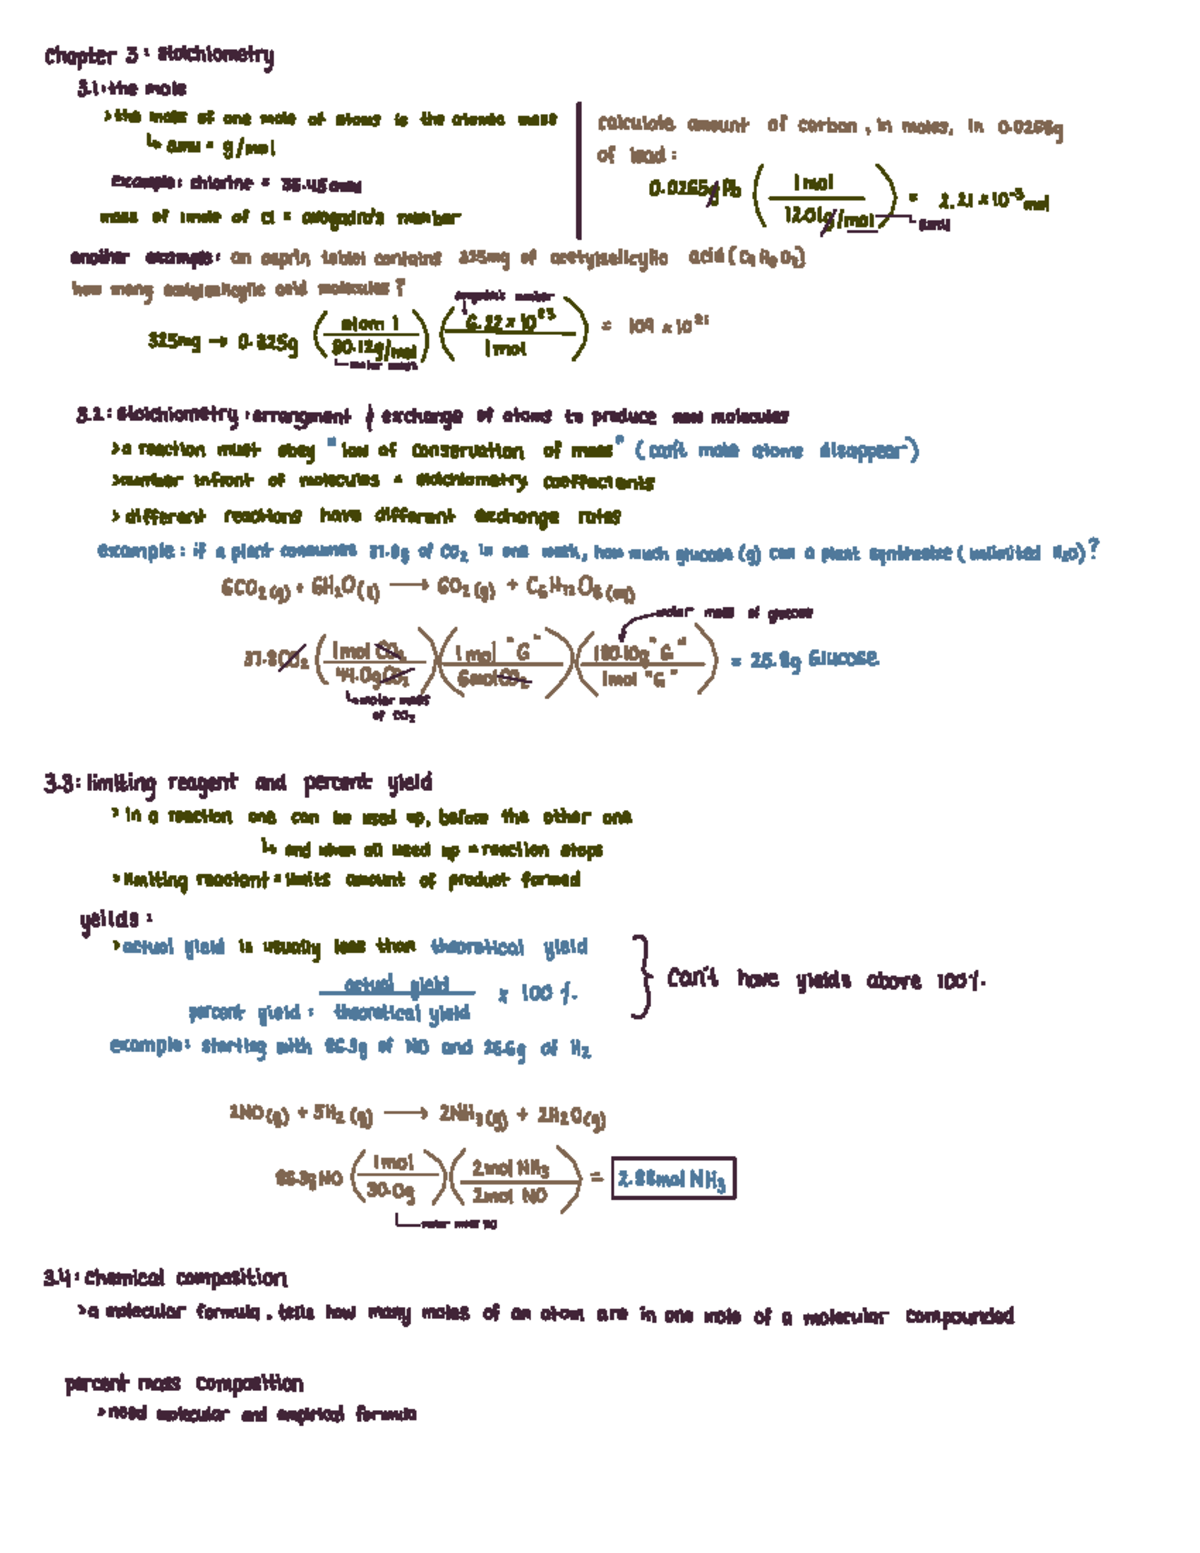 Chapter 3: Stoichiometry
3.1: the mole
> the mass of one mole of atoms is the atomic mass
↳ amu = g/mol
example: chlorine = 35.45 amu
mass of 1 mole of Cl = avogadro's number
calculate amount of carbon, in moles, in 0.0265g
of lead:
0.0265g Pb (1 mol / 12.01g/mol) = 2.21 × 10⁻³ mol
another example: an asprin tablet contains 325mg of acetylsalicylic acid (C9H8O4)
how many acetylsalicylic acid molecules?
avogadro's number
325mg → 0.325g (atom 1 / 180.12g/mol) (6.22 × 10²³ / 1 mol) = 109 × 10²¹
↳ molar mass
3.2: stoichiometry: arrangment & exchange of atoms to produce new molecules
> a reaction must obey "law of conservation of mass" (can't make atoms disappear)
> number infront of molecules = stoichiometry coeffecients
> different reactions have different exchange rates
example: if a plant consumes 37.8g of CO2 in one week, how much glucose (g) can a plant synthesize (unlimited H2O)?
6CO2(g) + 6H2O(l) → 6O2(g) + C6H12O6(aq)
molar mass of glucose
37.8CO2 (1 mol CO2 / 44.0g CO2) (1 mol "G" / 6 mol CO2) (180.10g "G" / 1 mol "G") = 25.8g Glucose
↳ molar mass
of CO2
3.3: limiting reagent and percent yield
> in a reaction one can be used up, before the other one
↳ and when all used up = reaction stops
> limiting reactant = limits amount of product formed
yeilds:
> actual yield is usually less than theoretical yield
percent yield: actual yield / theoretical yield × 100%
} Can't have yields above 100%.
example: starting with 86.3g of NO and 25.6g of H2
2NO(g) + 5H2(g) → 2NH3(g) + 2H2O(g)
86.3g NO (1 mol / 30.0g) (2 mol NH3 / 2 mol NO) = 2.88 mol NH3
molar mass NO
3.4: Chemical composition
> a molecular formula, tells how many moles of an atom are in one mole of a molecular compounded
percent mass composition
> need molecular and empirical formula